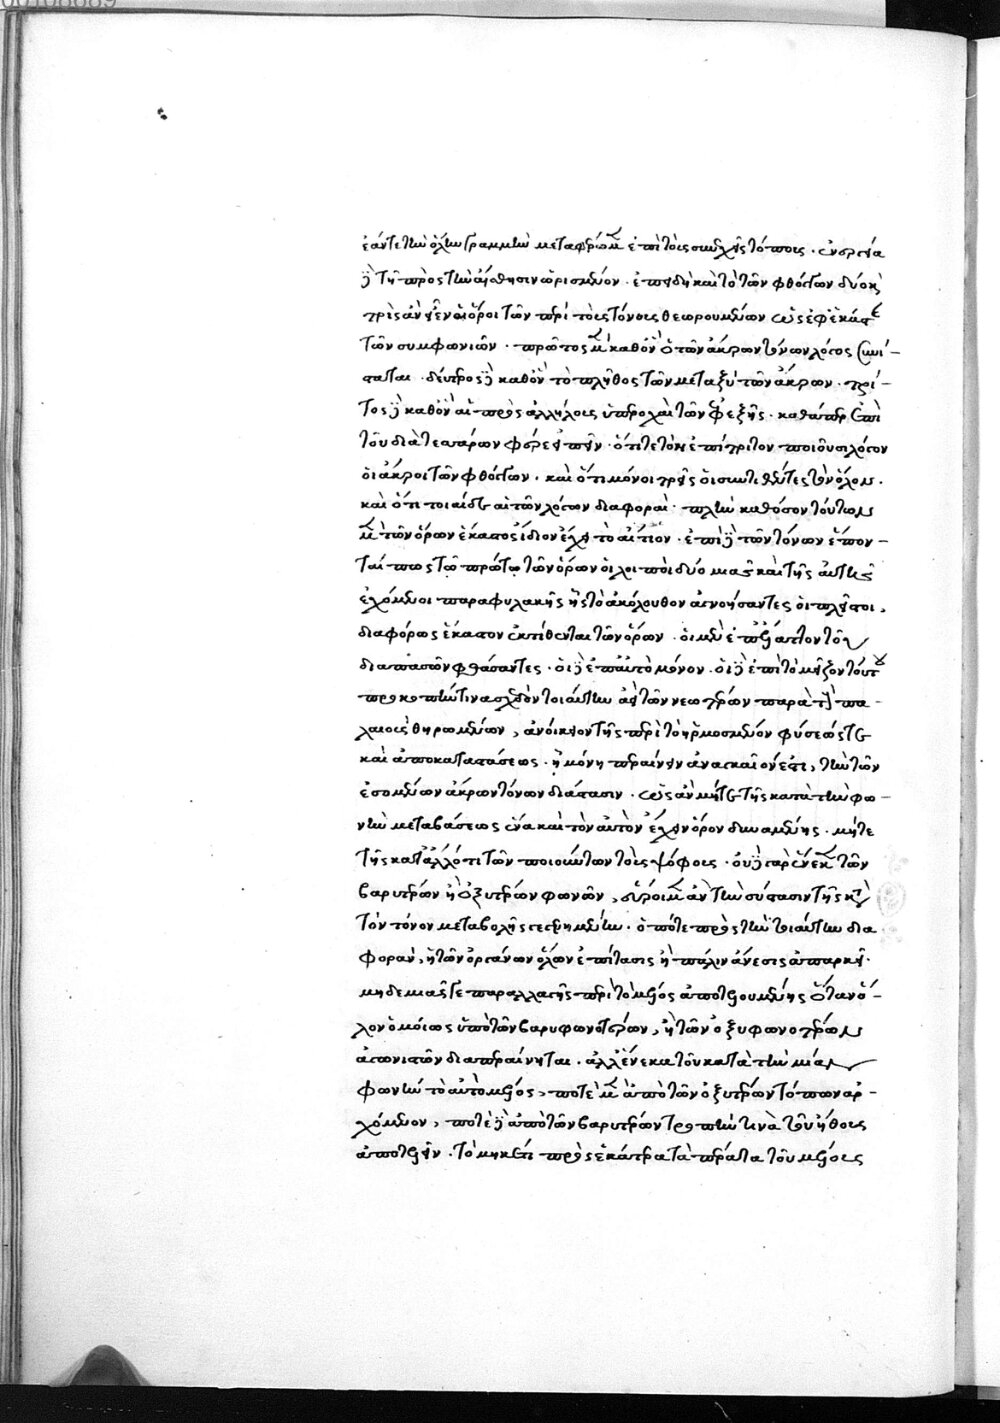 ἐάν τε τὴν ὅλην γραμμὴν μεταφέρωμεν ἐπὶ τοῖς συνεχέσι τόποις. ἐνεργείᾳ
δὲ τῇ πρὸς τὴν αἴσθησιν ὡρισμένον. ἐπειδὴ καὶ τὸ τῶν φθόγγων δύο καὶ
τρεῖς ἂν γένοιντο ὅροι τῶν περὶ τοὺς τόνους θεωρουμένων ὡς ἐφ' ἑκάστης
τῶν συμφωνιῶν. πρῶτος μὲν καθ' ὃν ὁ τῶν ἄκρων τόνων λόγος συνί-
σταται. δεύτερος δὲ καθ' ὃν τὸ πλῆθος τῶν μεταξὺ τῶν ἄκρων. τρί-
τος δὲ καθ' ὃν αἱ πρὸς ἀλλήλους ὑπεροχαὶ τῶν ἐφεξῆς. καθάπερ ἐπὶ
τοῦ διὰ τεσσάρων φέρε εἰπεῖν. ὅτι τε τὸν ἐπίτριτον ποιοῦσι λόγον
οἱ ἄκροι τῶν φθόγγων. καὶ ὅτι μόνοι τρεῖς οἱ συντιθέντες τὸν ὅλον.
καὶ ὅτι τοιαίδε αἱ τῶν λόγων διαφοραί. πλὴν καθόσον τούτων
μὲν τῶν ὅρων ἕκαστος ἴδιον ἔχει τὸ αἴτιον. ἐπὶ δὲ τῶν τόνων ἕπον-
ταί πως τῷ πρώτῳ τῶν ὅρων οἱ λοιποὶ δύο μιᾶς καὶ τῆς αὐτῆς
ἐχόμενοι παραφυλακῆς ἧς τὸ ἀκόλουθον ἀγνοήσαντες οἱ πλεῖστοι,
διαφόρως ἕκαστον ἐκτίθενται τῶν ὅρων. οἱ μὲν ἐπ' ἔλαττον τοῦ
διαπασῶν φθάσαντες. οἱ δὲ ἐπ' αὐτὸ μόνον. οἱ δὲ ἐπὶ τὸ μεῖζον τούτου
προκοπήν τινα σχεδὸν τοιαύτην ἀεὶ τῶν νεωτέρων παρὰ τοὺς πα-
λαιοὺς θηρωμένων, ἀνοίκειον τῆς περὶ τὸ ἡρμοσμένον φύσεώς τε
καὶ ἀποκαταστάσεως. ᾗ μόνῃ περαίνειν ἀναγκαῖόν ἐστι, τὴν τῶν
ἐσομένων ἄκρων τόνων διάστασιν. ὡς ἂν μήτε τῆς κατὰ τὴν φω-
νὴν μεταβάσεως ἕνα καὶ τὸν αὐτὸν ἔχειν ὅρον δυναμένης. μήτε
τῆς κατ' ἄλλό τι τῶν ποιούντων τοὺς ψόφους. οὐδὲ γὰρ ἕνεκεν τῶν
βαρυτέρων ἢ ὀξυτέρων φωνῶν, εὕροιμεν ἂν τὴν σύστασιν τῆς κατὰ
τὸν τόνον μεταβολῆς γεγενημένην. ὁπότε πρὸς τὴν τοιαύτην δια
φοράν, ἡ τῶν ὀργάνων ὅλων ἐπίτασις ἢ πάλιν ἄνεσις ἀπαρκεῖ.
μηδεμιᾶς γε παραλλαγῆς περὶ τὸ μέλος ἀποτελουμένης ὅταν ὅ-
λον ὁμοίως ὑπὸ τῶν βαρυφωνοτέρων, ἢ τῶν ὀξυφωνοτέρων
ἀγωνιστῶν διαπεραίνηται. ἀλλ' ἕνεκα τοῦ κατὰ τὴν μίαν
φωνὴν τὸ αὐτὸ μέλος, ποτὲ μὲν ἀπὸ τῶν ὀξυτέρων τόπων ἀρ-
χόμενον, ποτὲ δὲ ἀπὸ τῶν βαρυτέρων τροπήν τινα τοῦ ἤθους
ἀποτελεῖν. τὸ μηκέτι πρὸς ἑκάτερα τὰ πέρατα τοῦ μέλους